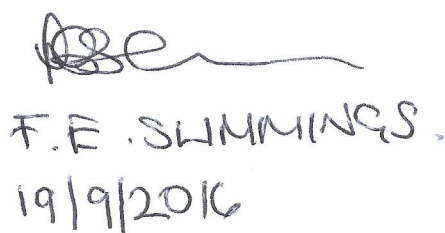 F.E. SLIMMINGS.
19/9/2016